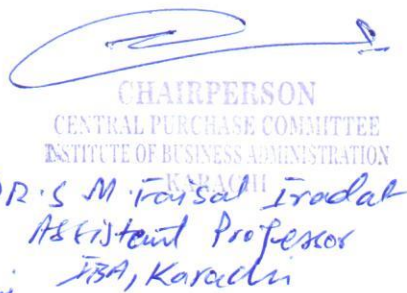 CHAIRPERSON
CENTRAL PURCHASE COMMITTEE
INSTITUTE OF BUSINESS ADMINISTRATION
KARACHI
DR. S M. Faisal Iradat
Assistant Professor
IBA, Karachi